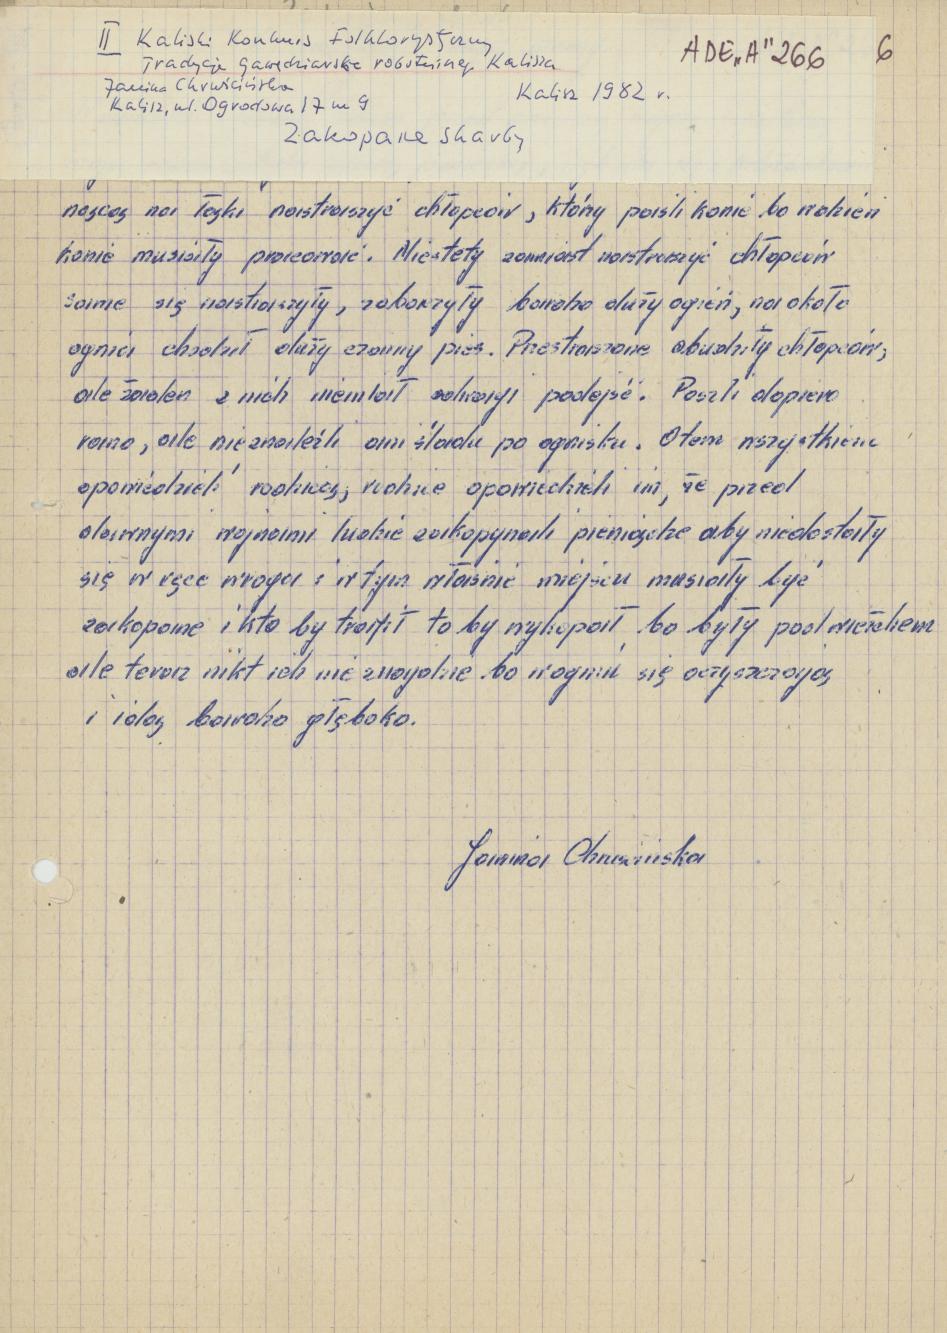 II Kaliski Konkurs Folklorystyczny
Tradycje gawędziarskie robotniczego Kalisza
ADE „A" 266
6
Janina Chruścińska
Kalisz, ul. Ogrodowa 17 m 9
Kalisz 1982 r.
Zakopane skarby
nascą na łąki nastraszyć chłopców, który paśli konie bo w dzień
konie musiały pracować. Niestety zamiast nastraszyć chłopców
same się nastraszyły, zobaczyły bardzo duży ogień, na około
ognia chodził duży czarny pies. Przestraszone obudziły chłopców,
ale żaden z nich niemiał odwagi podejść. Poszli dopiero
rano, ale nieznaleźli ani śladu po ognisku. O tem wszystkiem
opowiedzieli rodzicą, rodzice opowiedzieli im, że przed
dawnymi wojnami ludzie zakopywali pieniądze aby niedostały
się w ręce wroga i w tym właśnie miejscu musiały być
zakopane i kto by trafił to by wykopał bo były pod wierzchem
ale teraz nikt ich nie znajdzie bo w ogniu się oczyszczają
i idą bardzo głęboko.
Janina Chruścińska